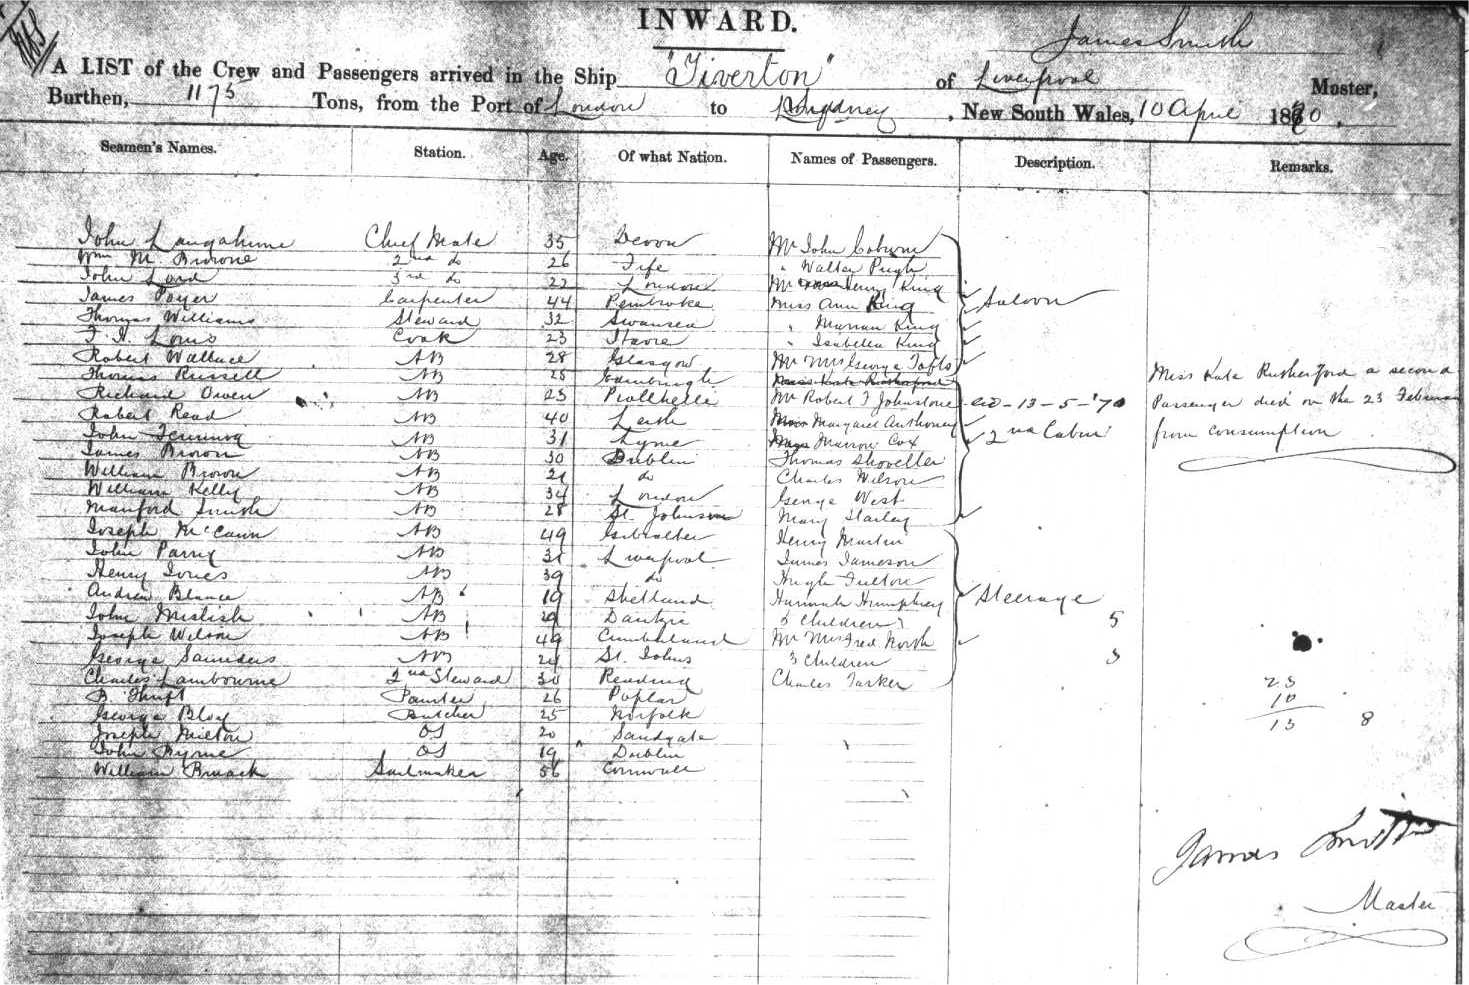 INWARD.
James Smith
A LIST of the Crew and Passengers arrived in the Ship "Tiverton" of Liverpool Master,
Burthen, 1175 Tons, from the Port of London to Sydney, New South Wales, 10 April 1870.
Seamen's Names. Station. Age. Of what Nation. Names of Passengers. Description. Remarks.
John Chief Mate 35 Devon Mr John Coburn
Wm M. Browne 2nd do 26 Fife " Walter Pugh
John Lord 3rd do 22 London Mr Henry King
James Poyer Carpenter 44 Pembroke Miss Ann King Saloon
Thomas Williams Steward 32 Swansea " Marian King
Cook 23 Havre " Isabella King
Robert Wallace AB 28 Glasgow Mr Mrs George Tofts
Thomas Russell AB 28 Edinburgh Miss Kate Rutherford Miss Kate Rutherford a second
Richard Owen AB 23 Pwllhelli Mr Robert F Johnstone - 13 - 5 - '70 Passenger died on the 23 February
Robert Read AB 40 Leith Margaret Anthoney 2nd Cabin from consumption
John AB 31 Tyne Marion Cox
James Brown AB 30 Dublin Thomas Shoveller
William Brown AB 21 do Charles Wilson
William Kelly AB 34 London George West
Manford Smith AB 28 St. Mary Starley
Joseph McCann AB 49 Gibralter Henry Martin
John Parry AB 31 Liverpool James Jameson
Henry Jones AB 39 do Hugh Fulton
Andrew Blance AB 19 Shetland Hannah Humphrey Steerage
John AB 29 Dantzic 5 Children 5
Joseph Wilson AB 49 Cumberland Mr Mrs Fred North
George Saunders AB 24 St. Johns 3 Children 3
Charles Lambourne 2nd Steward 30 Reading Charles Tarker 23
B. Thrift Painter 26 Poplar 10
George Bloy Butcher 25 Norfolk 13 8
Joseph Milton OS 20 Sandgate
John Byrne OS 19 Dublin
William Sailmaker 56 Cornwall
James Smith
Master